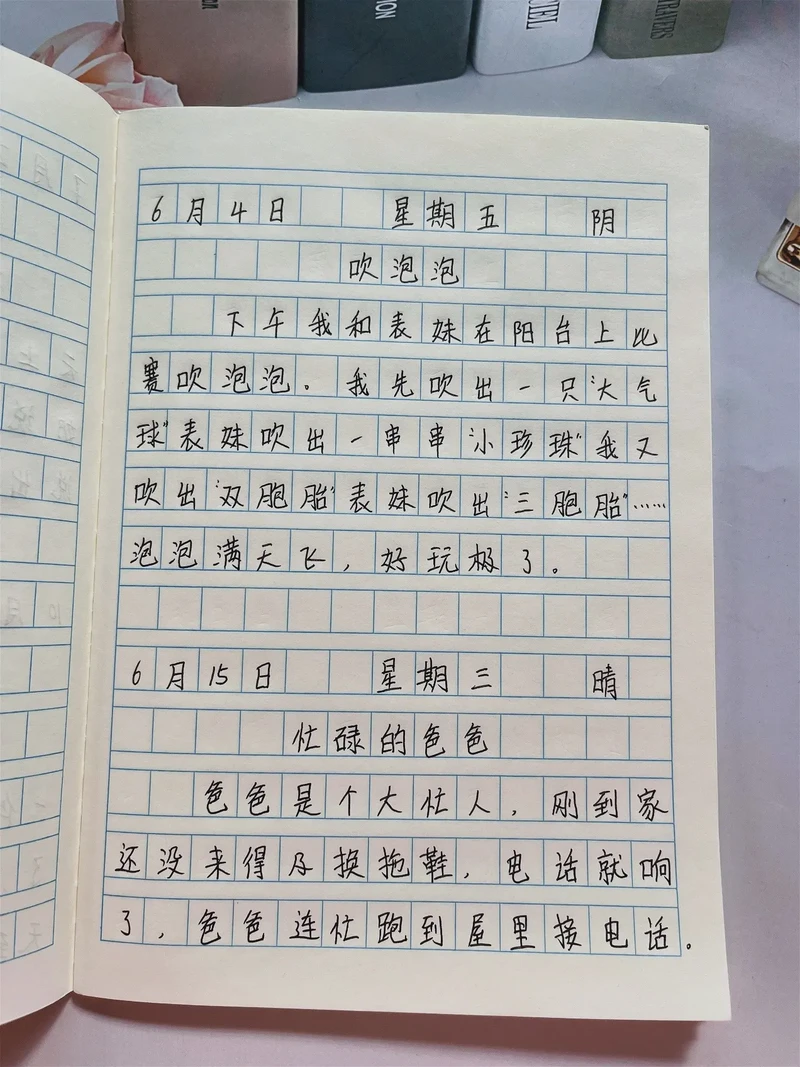 6月4日 星期五 阴
吹泡泡
下午我和表妹在阳台上比
赛吹泡泡。我先吹出一只“大气
球”表妹吹出一串串“小珍珠”我又
吹出“双胞胎”表妹吹出“三胞胎”……
泡泡满天飞，好玩极了。
6月15日 星期三 晴
忙碌的爸爸
爸爸是个大忙人，刚到家
还没来得及换拖鞋，电话就响
了，爸爸连忙跑到屋里接电话。